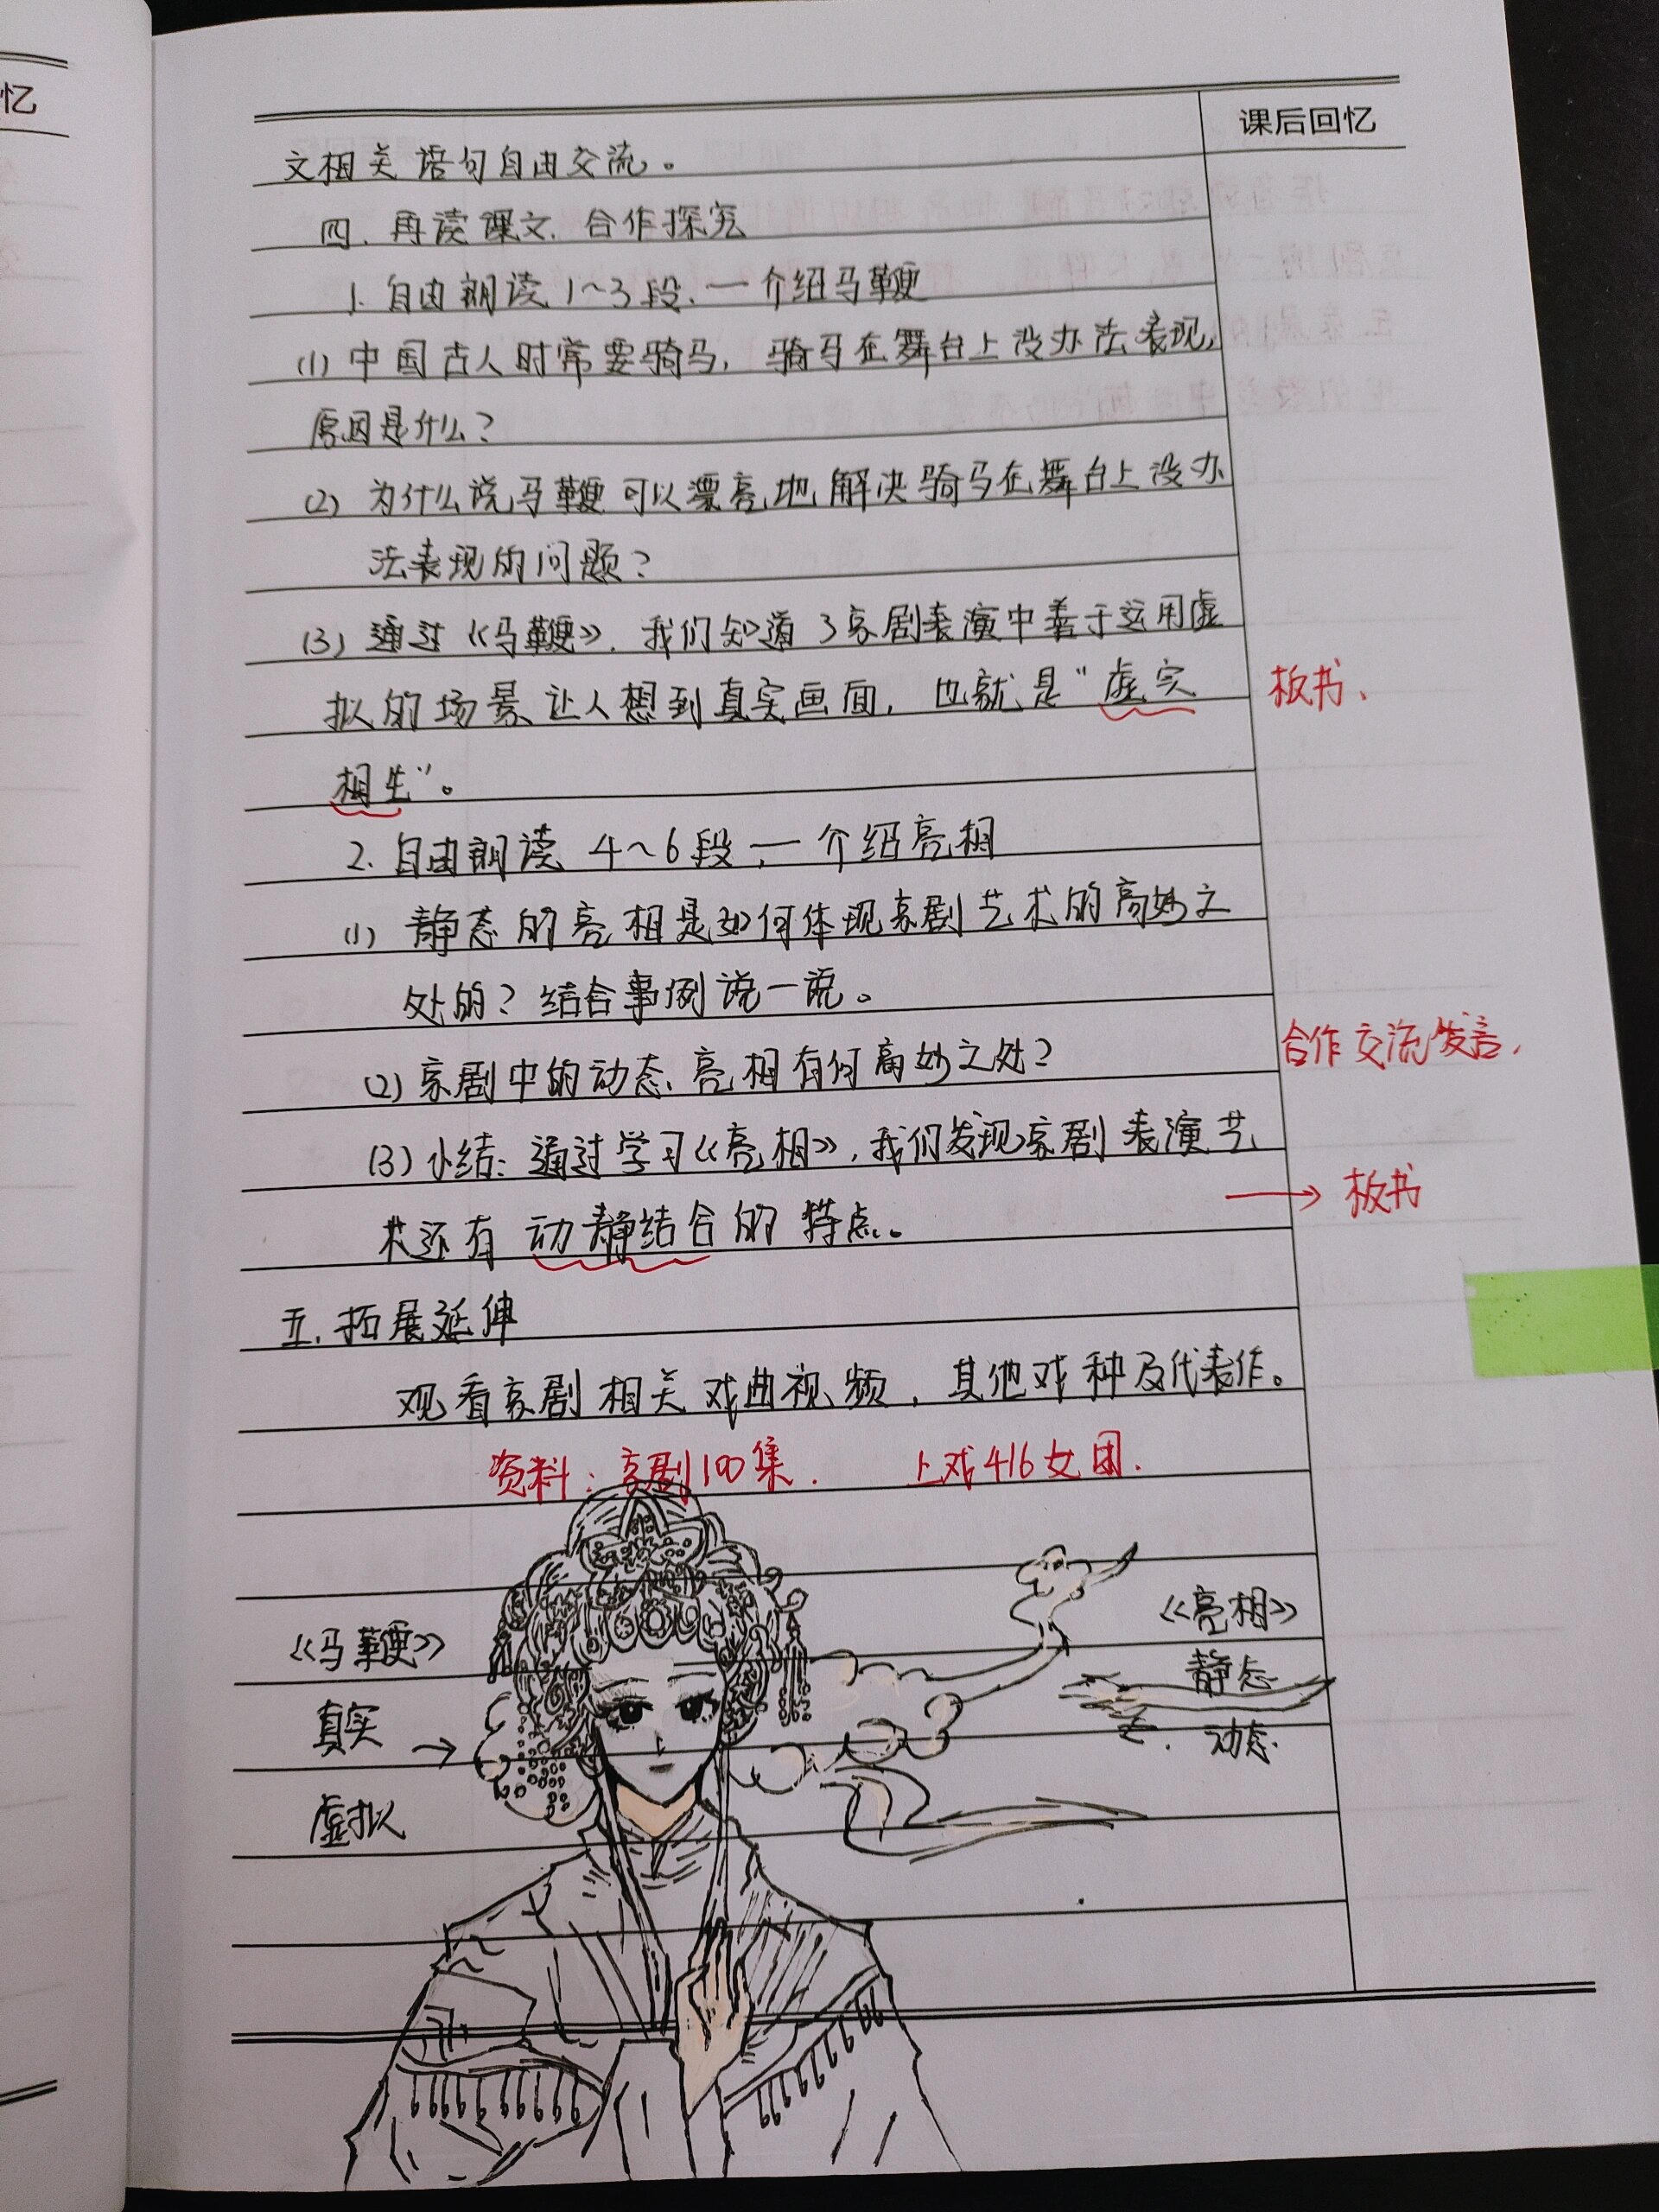 忆
课后回忆
文相关语句自由交流。
四.再读课文.合作探究
1.自由朗读1~3段.一介绍马鞭
(1)中国古人时常要骑马,骑马在舞台上没办法表现,
原因是什么?
(2)为什么说马鞭可以漂亮地解决骑马在舞台上没办
法表现的问题?
(3)通过《马鞭》,我们知道了京剧表演中善于运用虚
拟的场景让人想到真实画面,也就是"虚实 板书、
相生"。
2.自由朗读 4~6段,一介绍亮相
(1)静态的亮相是如何体现京剧艺术的高妙之
处的?结合事例说一说。
(2)京剧中的动态亮相有何高妙之处? 合作交流发言,
(3)小结:通过学习《亮相》,我们发现京剧表演艺
术还有动静结合的特点。 → 板书
五.拓展延伸
观看京剧相关戏曲视频,其他戏种及代表作。
资料:京剧100集. 上戏416女团.
《马鞭》 《亮相》
真实 → 静态
虚拟 动态